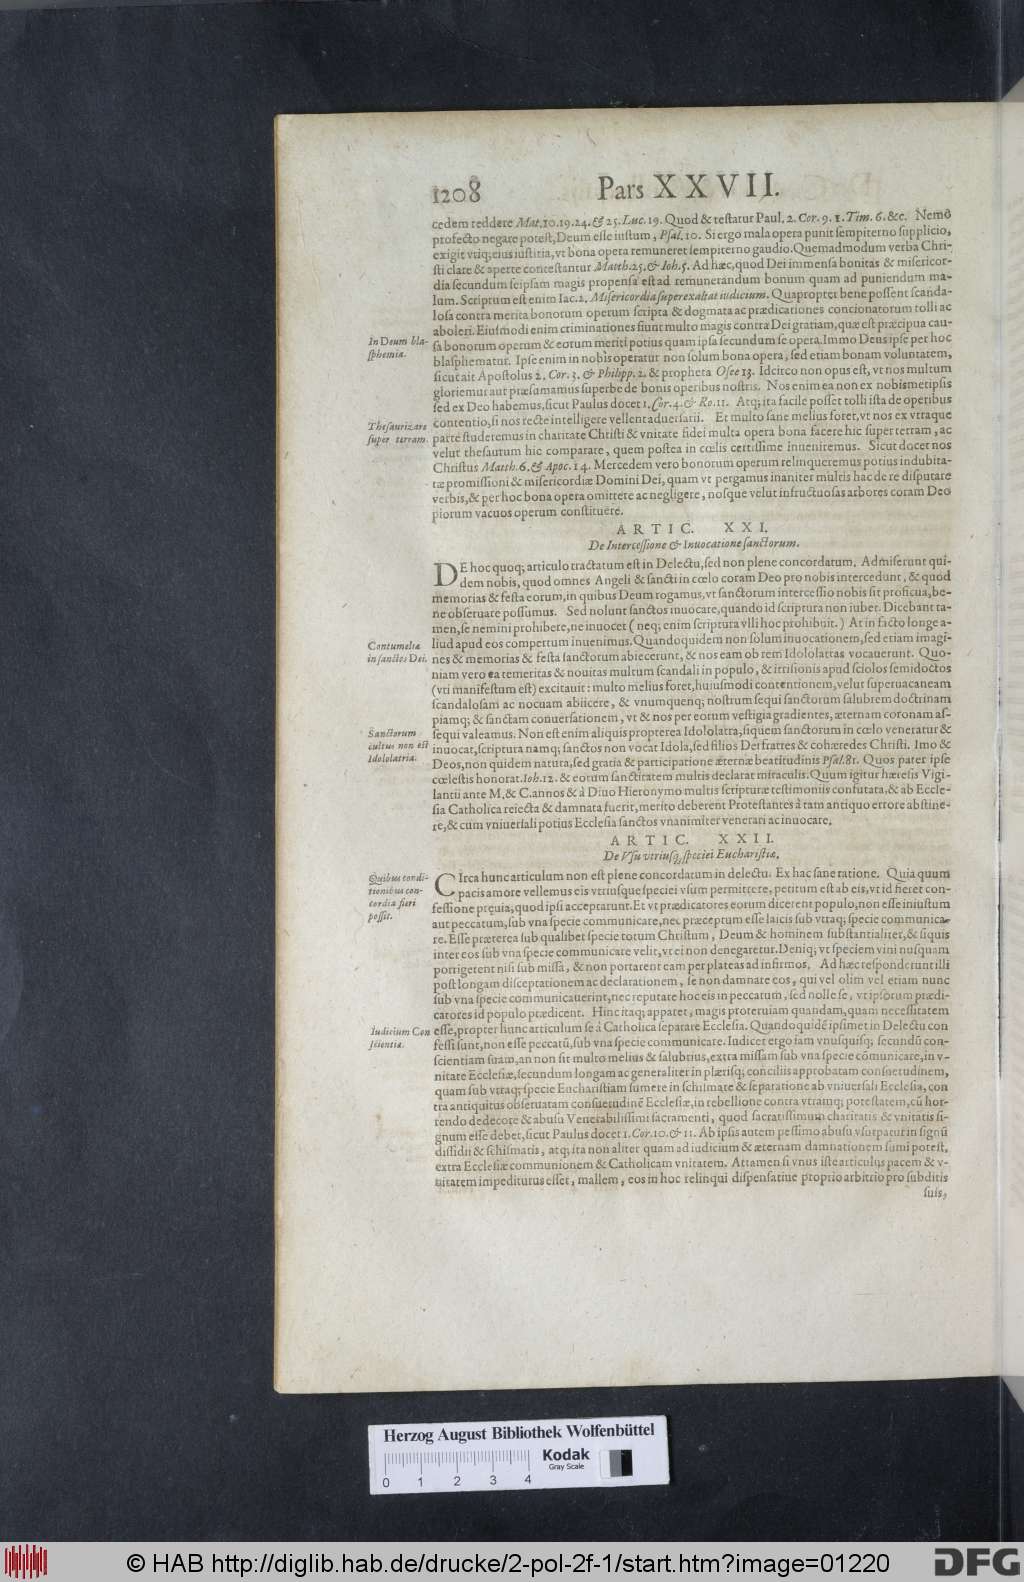 1208 Pars XXVII.
cedem reddere Mat. 10. 19. 24. & 25. Luc. 19. Quod & testatur Paul. 2. Cor. 9. 1. Tim. 6. &c. Nemo
profecto negare potest, Deum esse iustum, Psal. 10. Si ergo mala opera punit sempiterno supplicio,
exigit vtiq; eius iustitia, vt bona opera remuneret sempiterno gaudio. Quemadmodum verba Chri-
sti clare & aperte contestantur Matth. 25. & Ioh. 5. Ad hæc, quod Dei immensa bonitas & misericor-
dia secundum seipsam magis propensa est ad remunerandum bonum quam ad puniendum ma-
lum. Scriptum est enim Iac. 2. Misericordia superexaltat iudicium. Quapropter bene possent scanda-
losa contra merita bonorum operum scripta & dogmata ac prædicationes concionatorum tolli ac
aboleri. Eiusmodi enim criminationes fiunt multo magis contra Dei gratiam, quæ est præcipua cau-
In Deum bla-
sphemia.
sa bonorum operum & eorum meriti potius quam ipsa secundum se opera. Immo Deus ipse per hoc
blasphematur. Ipse enim in nobis operatur non solum bona opera, sed etiam bonam voluntatem,
sicut ait Apostolus 2. Cor. 3. & Philipp. 2. & propheta Osee 13. Idcirco non opus est, vt nos multum
gloriemur aut præsumamus superbe de bonis operibus nostris. Nos enim ea non ex nobismetipsis
sed ex Deo habemus, sicut Paulus docet 1. Cor. 4. & Ro. 11. Atq; ita facile posset tolli ista de operibus
Thesaurizare
super terram.
contentio, si nos recte intelligere vellent aduersarii. Et multo sane melius foret, vt nos ex vtraque
parte studeremus in charitate Christi & vnitate fidei multa opera bona facere hic super terram, ac
velut thesaurum hic comparare, quem postea in cœlis certissime inueniremus. Sicut docet nos
Christus Matth. 6. & Apoc. 14. Mercedem vero bonorum operum relinqueremus potius indubita-
tæ promissioni & misericordiæ Domini Dei, quam vt pergamus inaniter multis hac de re disputare
verbis, & per hoc bona opera omittere ac negligere, nosque velut infructuosas arbores coram Deo
piorum vacuos operum constituere.
ARTIC. XXI.
De Intercessione & Inuocatione sanctorum.
DE hoc quoq; articulo tractatum est in Delectu, sed non plene concordatum. Admiserunt qui-
dem nobis, quod omnes Angeli & sancti in cœlo coram Deo pro nobis intercedunt, & quod
memorias & festa eorum, in quibus Deum rogamus, vt sanctorum intercessio nobis sit proficua, be-
ne obseruare possumus. Sed nolunt sanctos inuocare, quando id scriptura non iubet. Dicebant ta-
men, se nemini prohibere, ne inuocet (neq; enim scriptura vlli hoc prohibuit.) At in facto longe a-
Contumelia
in sanctos Dei.
liud apud eos compertum inuenimus. Quandoquidem non solum inuocationem, sed etiam imagi-
nes & memorias & festa sanctorum abiecerunt, & nos eam ob rem Idololatras vocauerunt. Quo-
niam vero ea temeritas & nouitas multum scandali in populo, & irrisionis apud sciolos semidoctos
(vti manifestum est) excitauit: multo melius foret, huiusmodi contentionem, velut superuacaneam
scandalosam ac nocuam abiicere, & vnumquenq; nostrum sequi sanctorum salubrem doctrinam
piamq; & sanctam conuersationem, vt & nos per eorum vestigia gradientes, æternam coronam as-
Sanctorum
cultus non est
Idololatria.
sequi valeamus. Non est enim aliquis propterea Idololatra, si quem sanctorum in cœlo veneratur &
inuocat, scriptura namq; sanctos non vocat Idola, sed filios Dei fratres & cohæredes Christi. Imo &
Deos, non quidem natura, sed gratia & participatione æternæ beatitudinis Psal. 81. Quos pater ipse
cœlestis honorat. Ioh. 12. & eorum sanctitatem multis declarat miraculis. Quum igitur hæresis Vigi-
lantii ante M. & C. annos & à Diuo Hieronymo multis scripturæ testimoniis confutata, & ab Eccle-
sia Catholica reiecta & damnata fuerit, merito deberent Protestantes à tam antiquo errore abstine-
re, & cum vniuersali potius Ecclesia sanctos vnanimiter venerari ac inuocare.
ARTIC. XXII.
De Vsu vtriusq; speciei Eucharistiæ.
Quibus condi-
tionibus con-
cordia fieri
possit.
CIrca hunc articulum non est plene concordatum in delectu. Ex hac sane ratione. Quia quum
pacis amore vellemus eis vtriusque speciei vsum permittere, petitum est ab eis, vt id fieret con-
fessione præuia, quod ipsi acceptarunt. Et vt prædicatores eorum dicerent populo, non esse iniustum
aut peccatum, sub vna specie communicare, nec præceptum esse laicis sub vtraq; specie communica-
re. Esse præterea sub qualibet specie totum Christum, Deum & hominem substantialiter, & si quis
inter eos sub vna specie communicare velit, vt ei non denegaretur. Deniq; vt speciem vini nusquam
porrigerent nisi sub missa, & non portarent eam per plateas ad infirmos. Ad hæc responderunt illi
post longam disceptationem ac declarationem, se non damnare eos, qui vel olim vel etiam nunc
sub vna specie communicauerint, nec reputare hoc eis in peccatum, sed nolle se, vt ipsorum prædi-
catores id populo prædicent. Hinc itaq; apparet, magis proteruiam quandam, quam necessitatem
Iudicium Con
scientiæ.
esse, propter hunc articulum se à Catholica separare Ecclesia. Quandoquidē ipsimet in Delectu con
fessi sunt, non esse peccatū, sub vna specie communicare. Iudicet ergo iam vnusquisq; secundū con-
scientiam suam, an non sit multo melius & salubrius, extra missam sub vna specie cōmunicare, in v-
nitate Ecclesiæ, secundum longam ac generaliter in plærisq; conciliis approbatam consuetudinem,
quam sub vtraq; specie Eucharistiam sumere in schismate & separatione ab vniuersali Ecclesia, con
tra antiquitus obseruatam consuetudinē Ecclesiæ, in rebellione contra vtramq; potestatem, cū hor-
rendo dedecore & abusu Venerabilissimi sacramenti, quod sacratissimum charitatis & vnitatis si-
gnum esse debet, sicut Paulus docet 1. Cor. 10. & 11. Ab ipsis autem pessimo abusu vsurpatur in signū
dissidii & schismatis, atq; ita non aliter quam ad iudicium & æternam damnationem sumi potest,
extra Ecclesiæ communionem & Catholicam vnitatem. Attamen si vnus iste articulus pacem & v-
nitatem impediturus esset, mallem, eos in hoc relinqui dispensatiue proprio arbitrio pro subditis
suis,
Herzog August Bibliothek Wolfenbüttel
Kodak
Gray Scale
0 1 2 3 4
© HAB http://diglib.hab.de/drucke/2-pol-2f-1/start.htm?image=01220
DFG